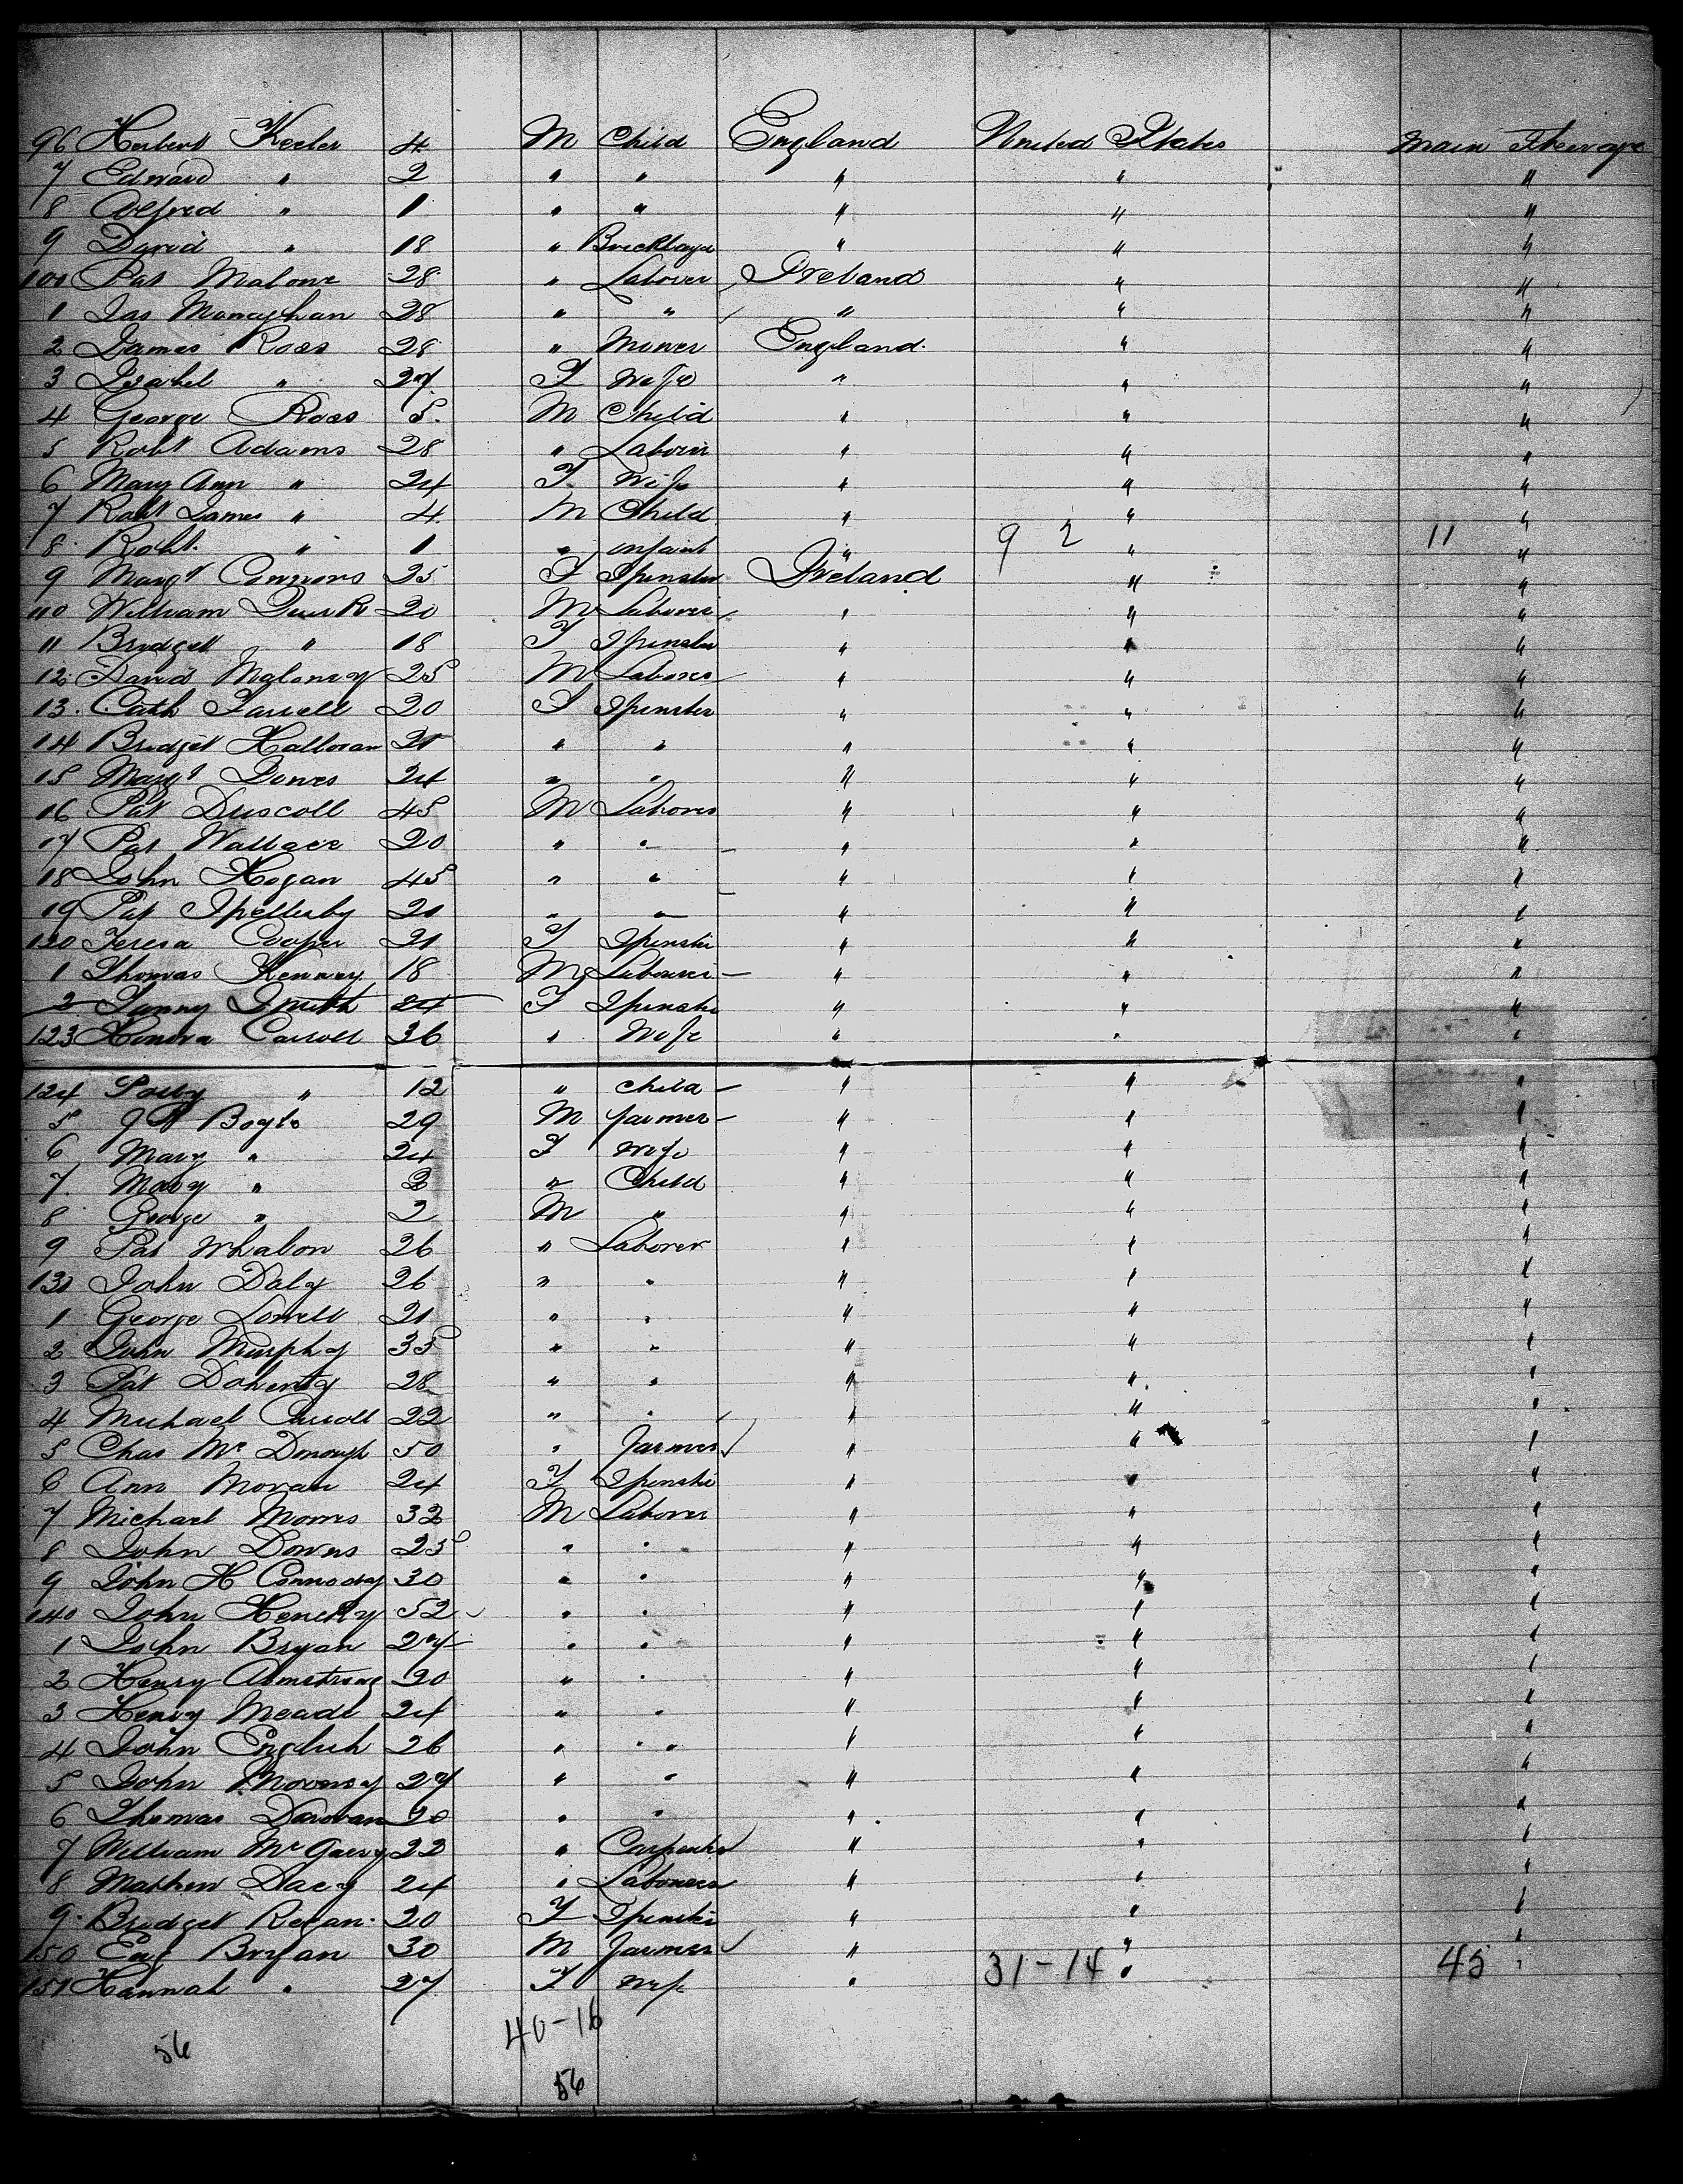 96 Herbert Keeler 4 M Child England United States Main Steerage
7 Edward " 2 " " " " "
8 Alfred " 1 " " " " "
9 David " 18 " Bricklayer " " "
100 Pat Malone 28 " Laborer Ireland " "
1 Jas Monaghan 28 " " " " "
2 James Ross 28 " Miner England " "
3 Isabel " 27 F Wife " " "
4 George Ross 5 M Child " " "
5 Robt Adams 28 " Laborer " " "
6 Mary Ann " 24 F Wife " " "
7 Robt James " 4 M Child " " "
8 Robt. " 1 " infant " 9 2 " 11 "
9 Margt Connors 25 F Spinster Ireland " "
110 William 20 M Laborer " " "
11 Bridget " 18 F Spinster " " "
12 David Maloney 25 M Laborer " " "
13. Cath Farrell 20 F Spinster " " "
14 Bridget Halloran 21 " " " " "
15 Margt Downes 24 " " " " "
16 Pat Driscoll 45 M Laborer " " "
17 Pat Wallace 20 " " " " "
18 John Hogan 45 " " " " "
19 Pat Spellisby 21 " " " " "
120 Teresa Cooper 21 F Spinster " " "
1 Thomas Kenney 18 M Laborer " " "
2 Fanny Smith 24 F Spinster " " "
123 Honora Carroll 36 " Wife " " "
124 Polly " 12 " Child " " "
5 Boyle 29 M farmer " " "
6 Mary " 24 F Wife " " "
7. Mary " 3 " Child " " "
8 George " 2 M " " " "
9 Pat Whalon 26 " Laborer " " "
130 John Daly 26 " " " " "
1 George Lowell 21 " " " " "
2 John Murphy 35 " " " " "
3 Pat Doherty 28 " " " " "
4 Michael Carroll 22 " " " " "
5 Chas McDonough 50 " Farmer " " "
6 Ann Moran 24 F Spinster " " "
7 Michael Morris 32 M Laborer " " "
8 John Downs 25 " " " " "
9 John H 30 " " " " "
140 John 52 " " " " "
1 John Bryan 27 " " " " "
2 Henry Armstrong 20 " " " " "
3 Henry Meade 24 " " " " "
4 John English 26 " " " " "
5 John 27 " " " " "
6 Thomas Donovan 20 " " " " "
7 William McGarry 22 " Carpenter " " "
8 Mathew Dacy 24 " Laborer " " "
9. Bridget Regan. 20 F Spinster " " "
150 Bryan 30 M Farmer " " "
151 Hannah " 27 F Wife " 31-14 " 45 "
40-16
56
56